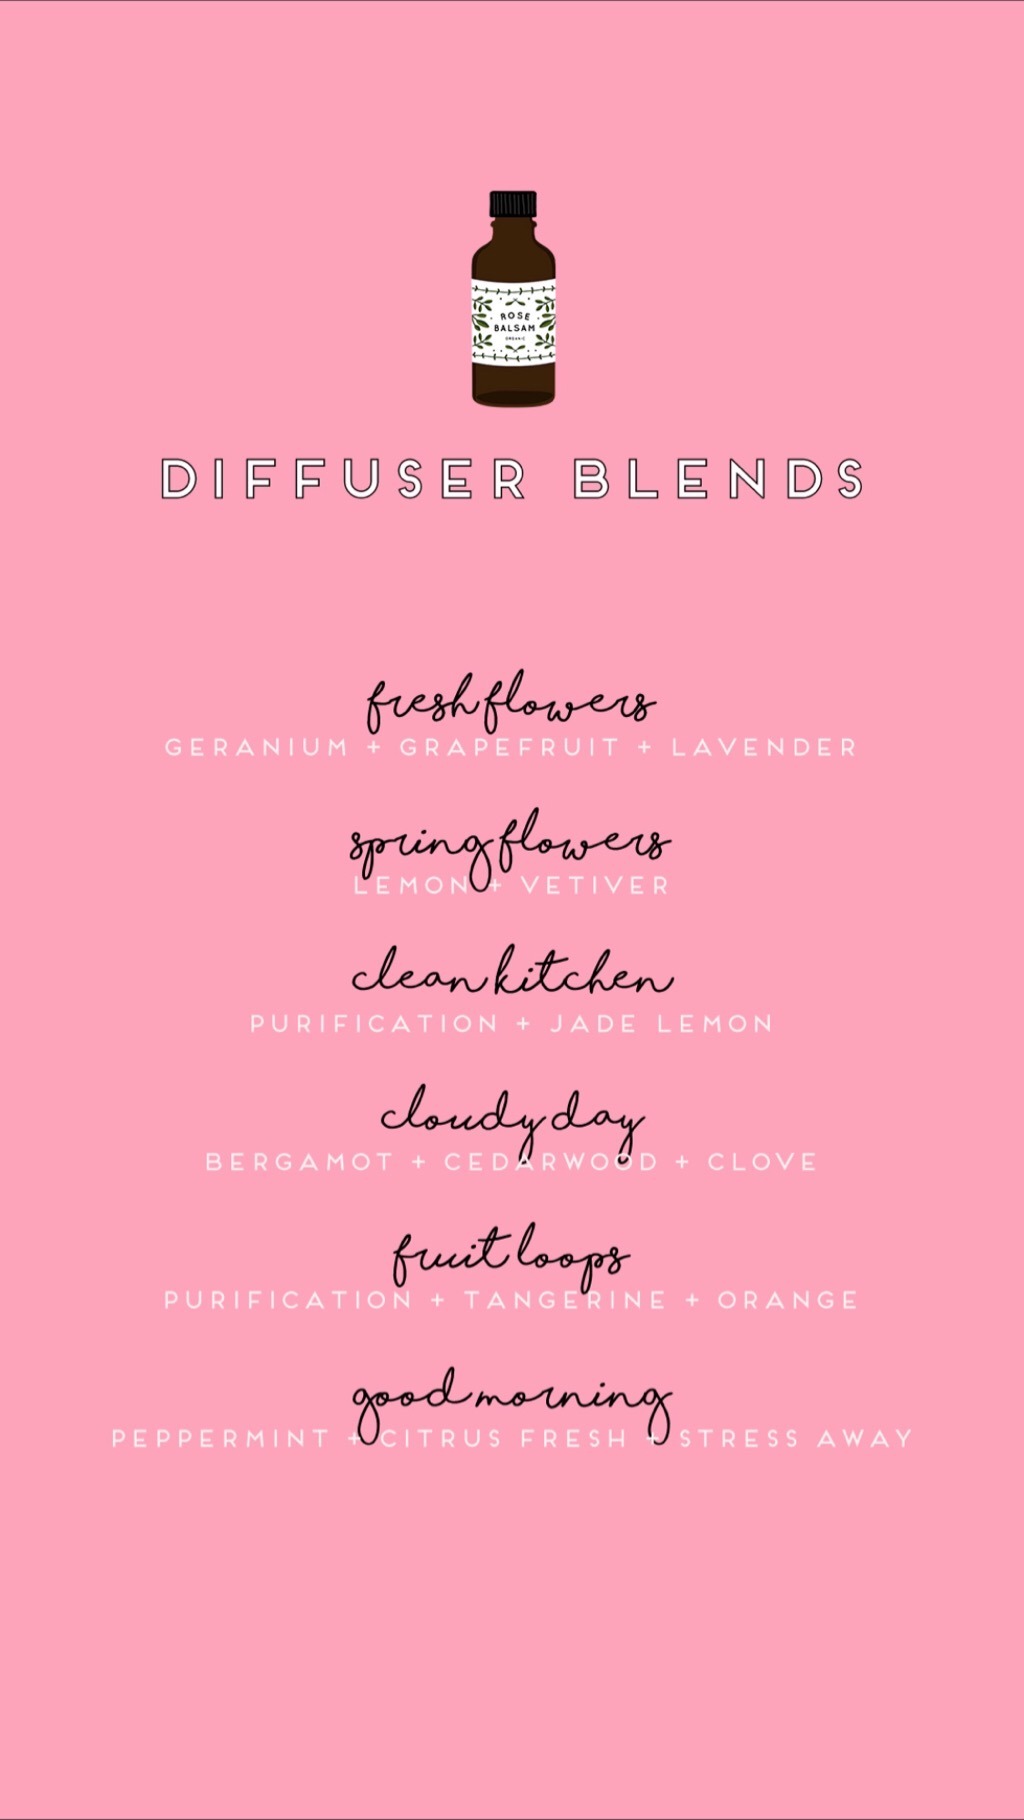 ROSE
BALSAM
ORGANIC
DIFFUSER BLENDS
fresh flowers
GERANIUM + GRAPEFRUIT + LAVENDER
spring flowers
LEMON + VETIVER
clean kitchen
PURIFICATION + JADE LEMON
cloudy day
BERGAMOT + CEDARWOOD + CLOVE
fruit loops
PURIFICATION + TANGERINE + ORANGE
good morning
PEPPERMINT + CITRUS FRESH + STRESS AWAY